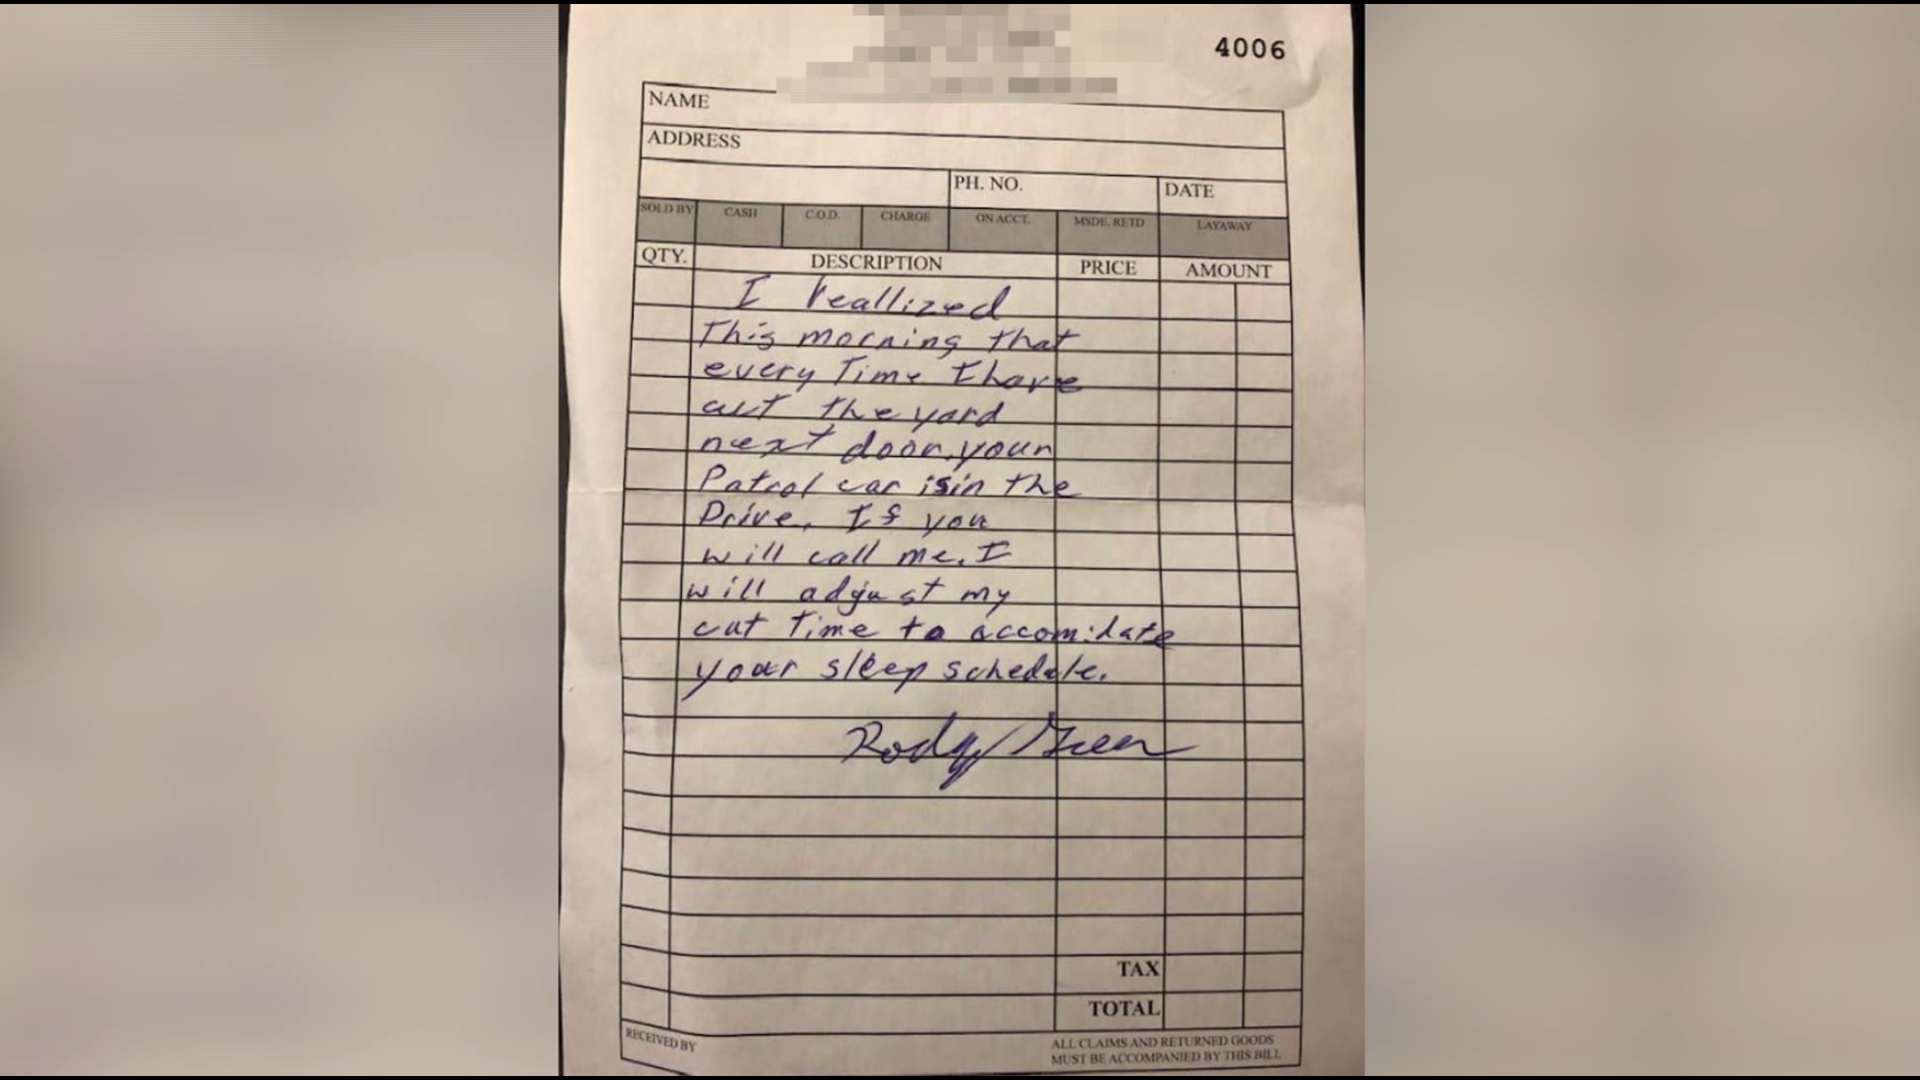 4006
NAME
ADDRESS
PH. NO.
DATE
SOLD BY
CASH
C.O.D.
CHARGE
ON ACCT.
MSDE. RETD
LAYAWAY
QTY.
DESCRIPTION
PRICE
AMOUNT
I reallized
This morning that
every Time I have
cut the yard
next door, your
Patrol car is in the
Drive. If you
will call me, I
will adjust my
cut Time to accomidate
your sleep schedule.
Green
TAX
TOTAL
RECEIVED BY
ALL CLAIMS AND RETURNED GOODS
MUST BE ACCOMPANIED BY THIS BILL